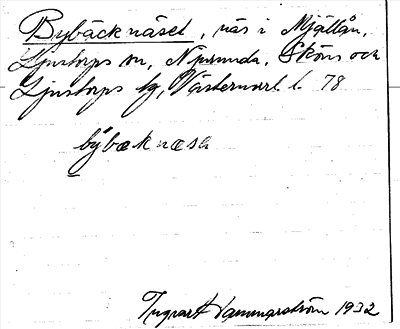 Bybäcknäset, näs i Mjällån,
Ljustorps sn, Njurunda, Sköns och
Ljustorps tg, Västernorrl. l. 78
bỳbæknæsə
Ingvar Hammarström 1932